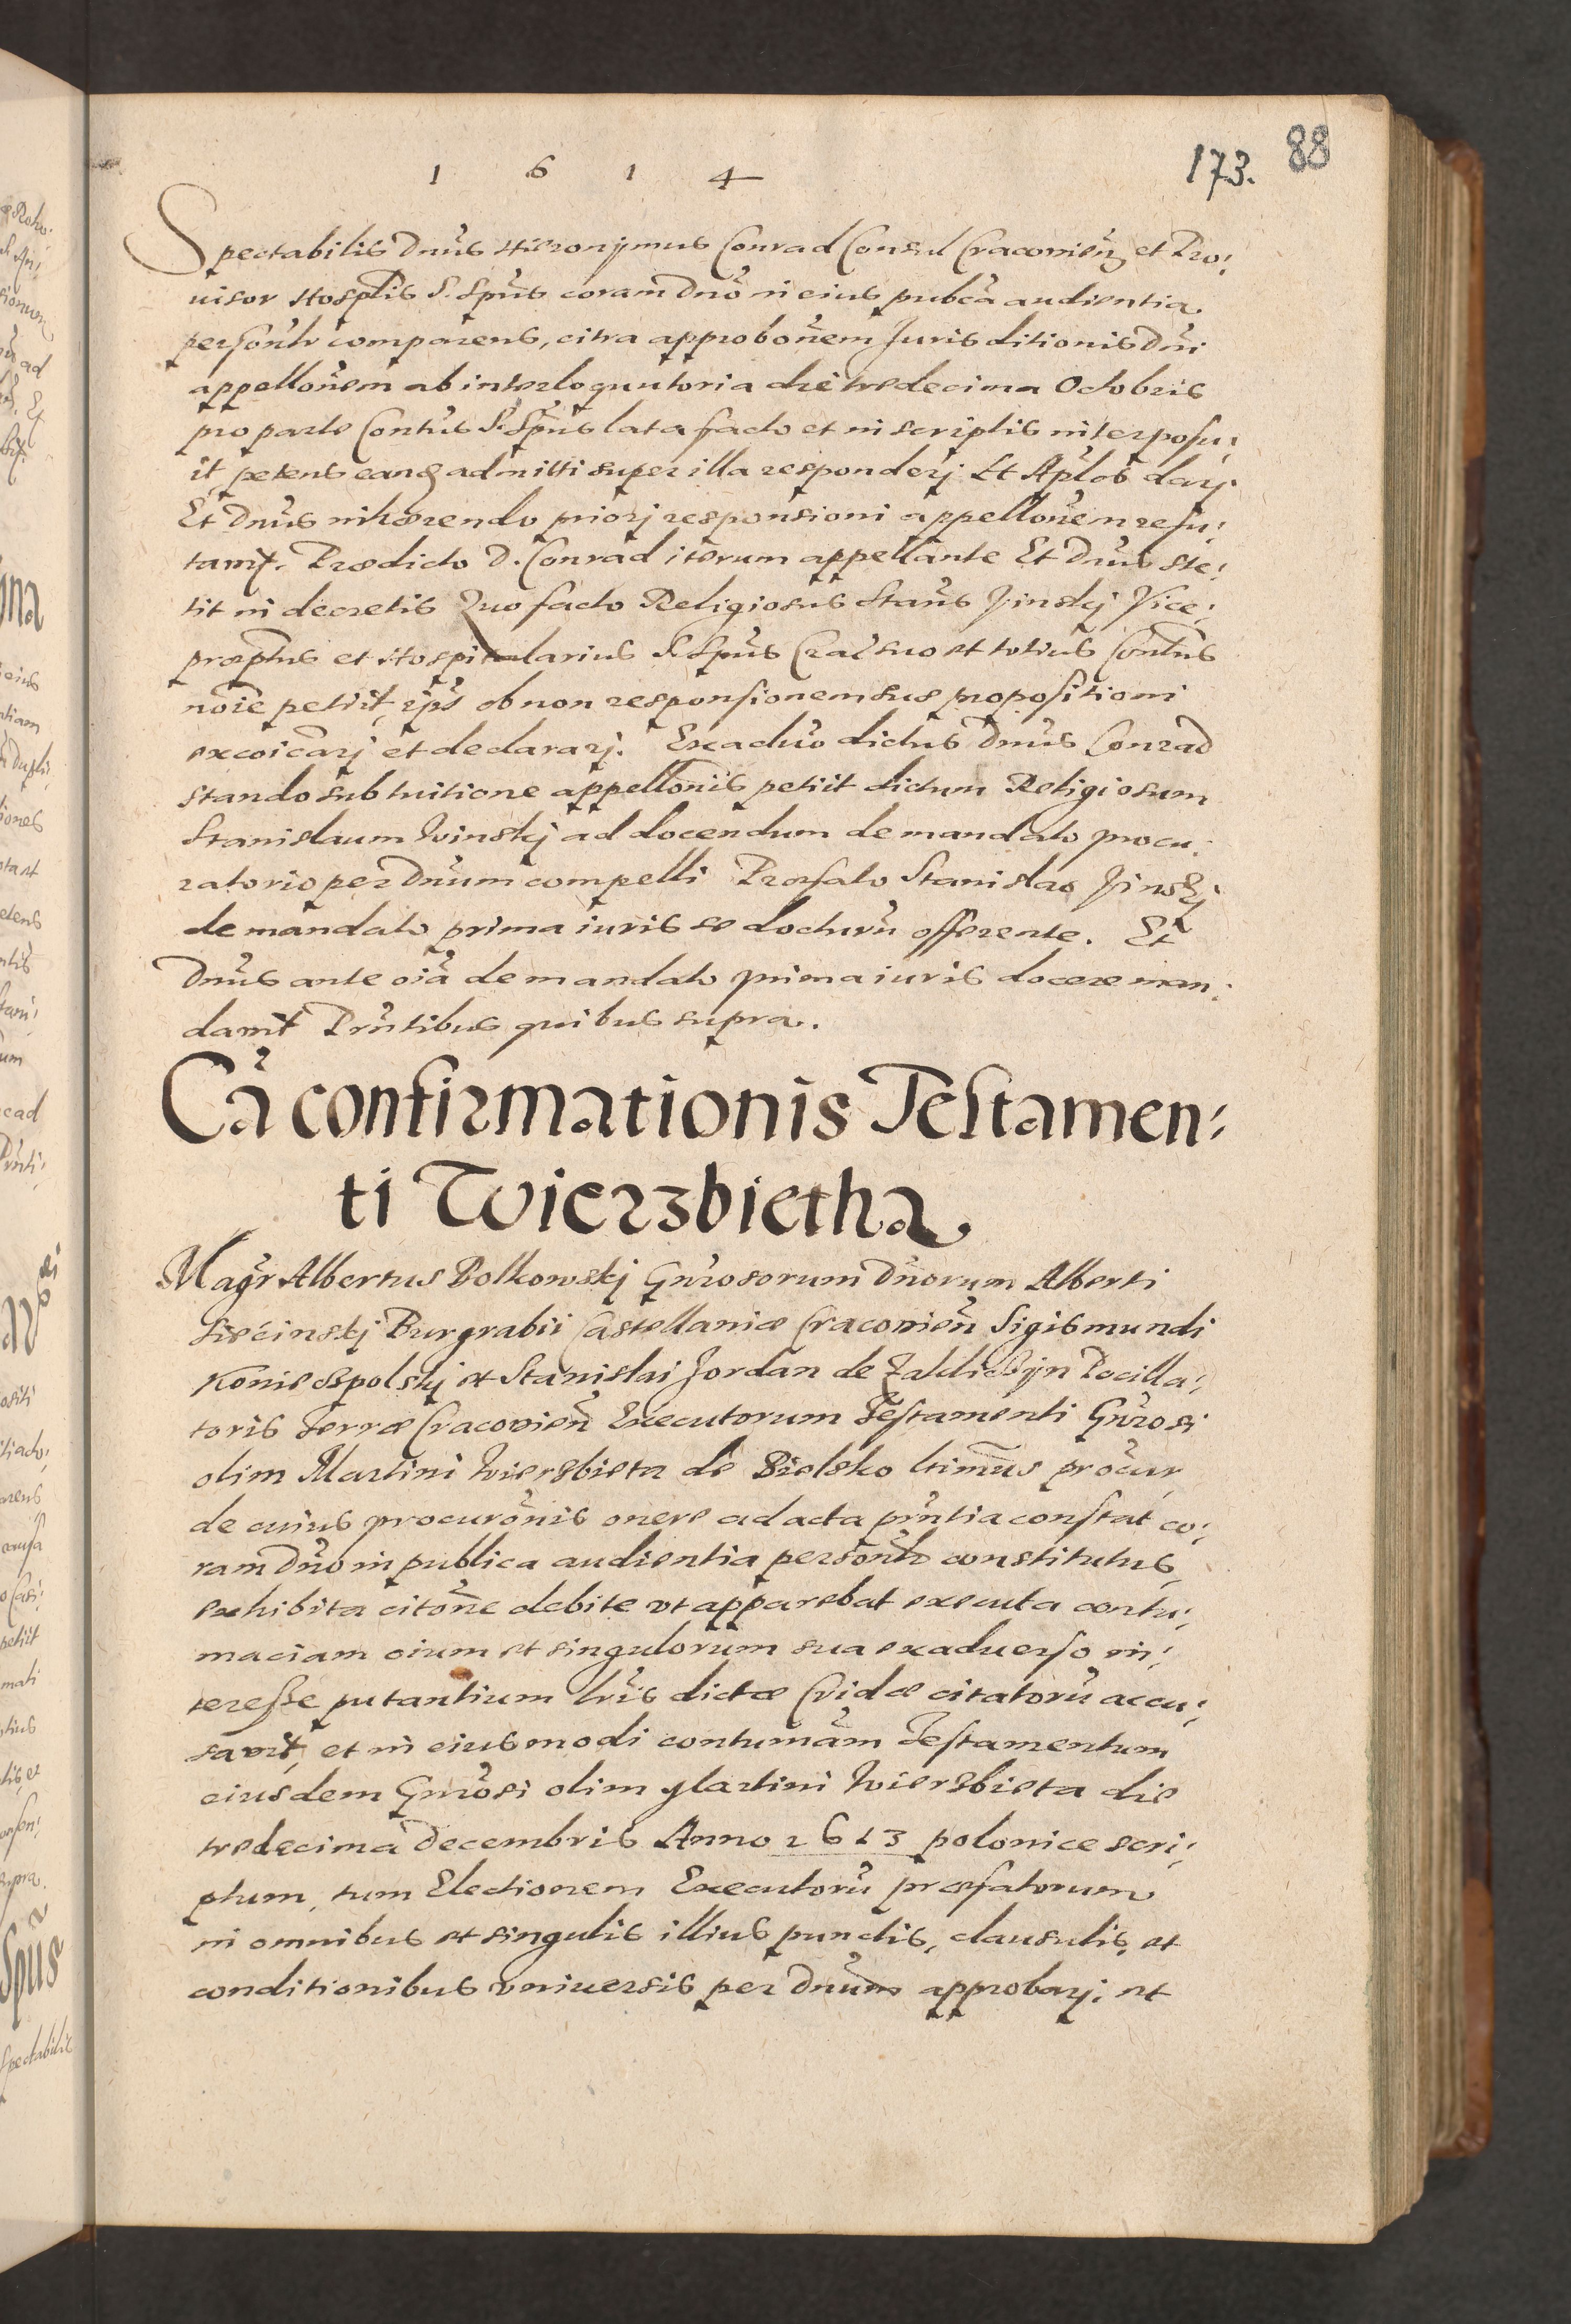 1 6 1 4
173. 88
Spectabilis Dnus Hieronymus Conrad Consul Cracovien et Pro:
visor Hosplis S. Spus coram Dno in eius pubca audientia
personlr comparens, citra approbonem Jurisditionis Dni
appellonem ab interloquutoria die tredecima Octobris
pro parte Contus S. Spus lata facto et in scriptis interposu:
it, petens eanq admitti super illa responderj Et Aplos darj
Et Dnus inhærendo priorj responsioni appellonem refu:
tavit. Prædicto D. Conrad iterum appellante Et Dnus ste:
tit in decretis Quo facto Religiosus Stans Jinskj Vice:
præptus et Hospitalarius S. Spus Crac suo et totius Contus
noie petiit, ips ob non responsionem suæ propositioni
excoicarj et declararj. Exaduo dictus Dnus Conrad
stando sub tuitione appellonis petiit dictum Religiosum
Stanislaum Winskj ad docendum de mandato procu:
ratorio per Dnum compelli Præfato Stanislao Jinskj
de mandato prima iuris se docturu offerente. Et
Dnus ante oia de mandato prima iuris docere man:
davit Prntibus quibus supra.
Ca confirmationis Testamen:
ti Wierzbietha
Magr Albertus Polkowskj Gnrosorum Dnorum Alberti
Siecinskj Burgrabii Castellaniæ Cracovien Sigismundi
Koniecspolskj et Stanislai Jordan de Zaklicżyn Pocilla:
toris Terræ Cracovien Executorum Testamenti Gnrosi
olim Martini Wiersbieta de Bielsko ltimus procur
de cuius procuronis onere ad acta prntia constat co:
ram Dno in publica audientia personlr constitutus,
exhibita citone debite vt apparebat executa contu:
maciam oium et singulorum sua exaduerso in:
teresse putantium lris dictæ Cridæ citatoru accu:
savit, et in eiusmodi contumam Testamentum
eiusdem Gnrosi olim Martini Wiersbieta die
tredecima Decembris Anno 1613 polonice scri:
ptum, tum Electionem Executoru præfatorum
in omnibus et singulis illius punctis, clausulis, et
conditionibus vniuersis per Dnum approbarj: et